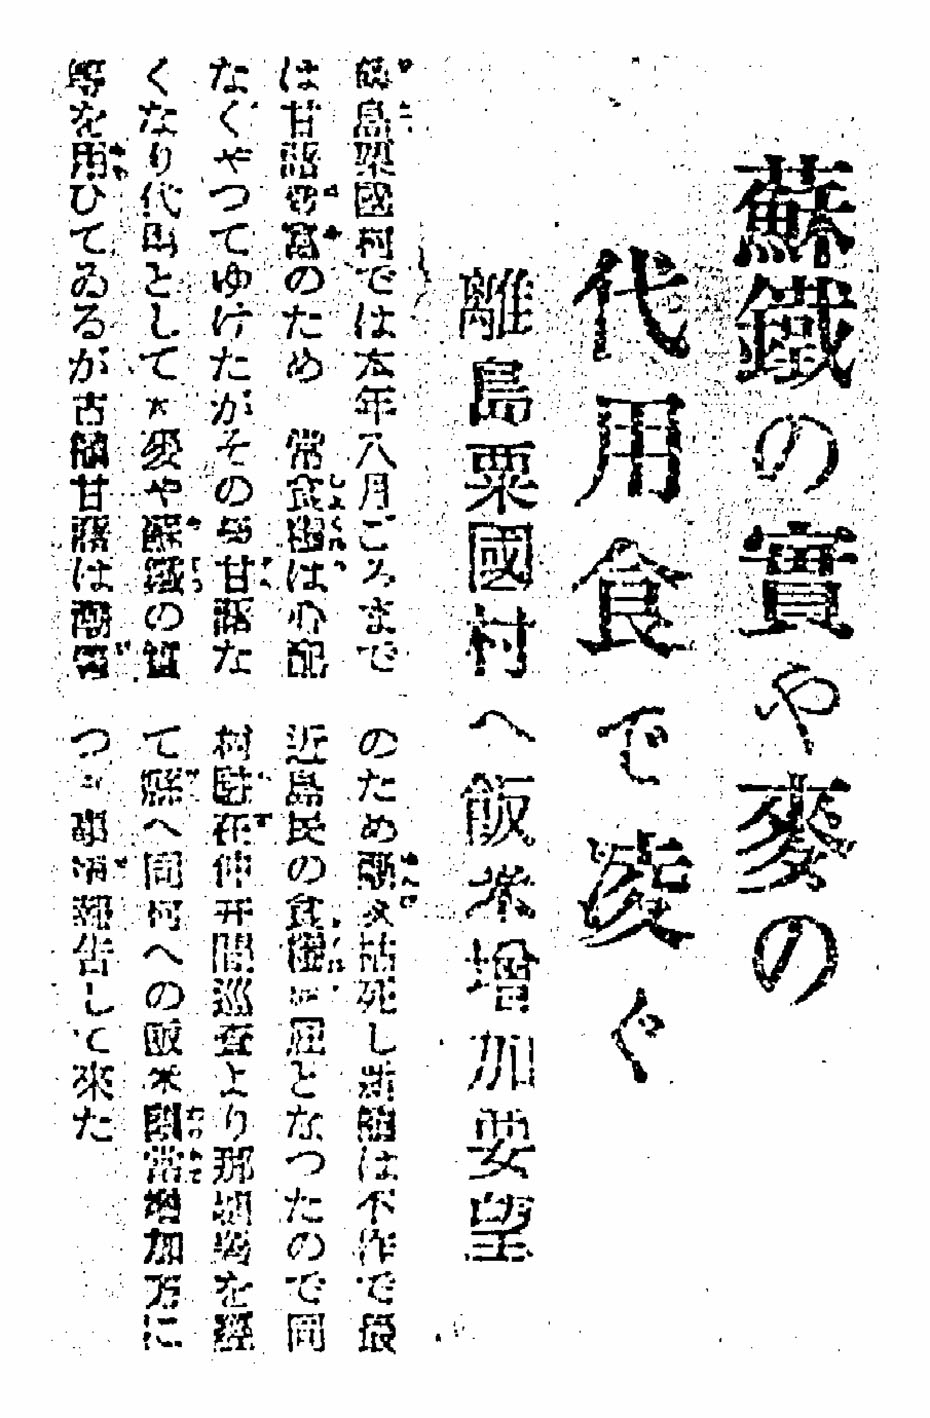 蘇鐵の實や麥の
代用食で凌ぐ
離島粟國村へ飯米増加要望
離島粟國村では本年八月ごろまで
は甘藷豊富のため 常食糧は心配
なくやつてゆけたがその後甘藷な
くなり代用として大麥や蘇鐵の實
等を用ひてゐるが古植甘藷は潮害
のため 枯死し新植は不作で最
近島民の食糧 となつたので同
村駐在仲井間巡査より那覇署を經
て縣へ同村への飯米 増加方に
つき事情報告して來た